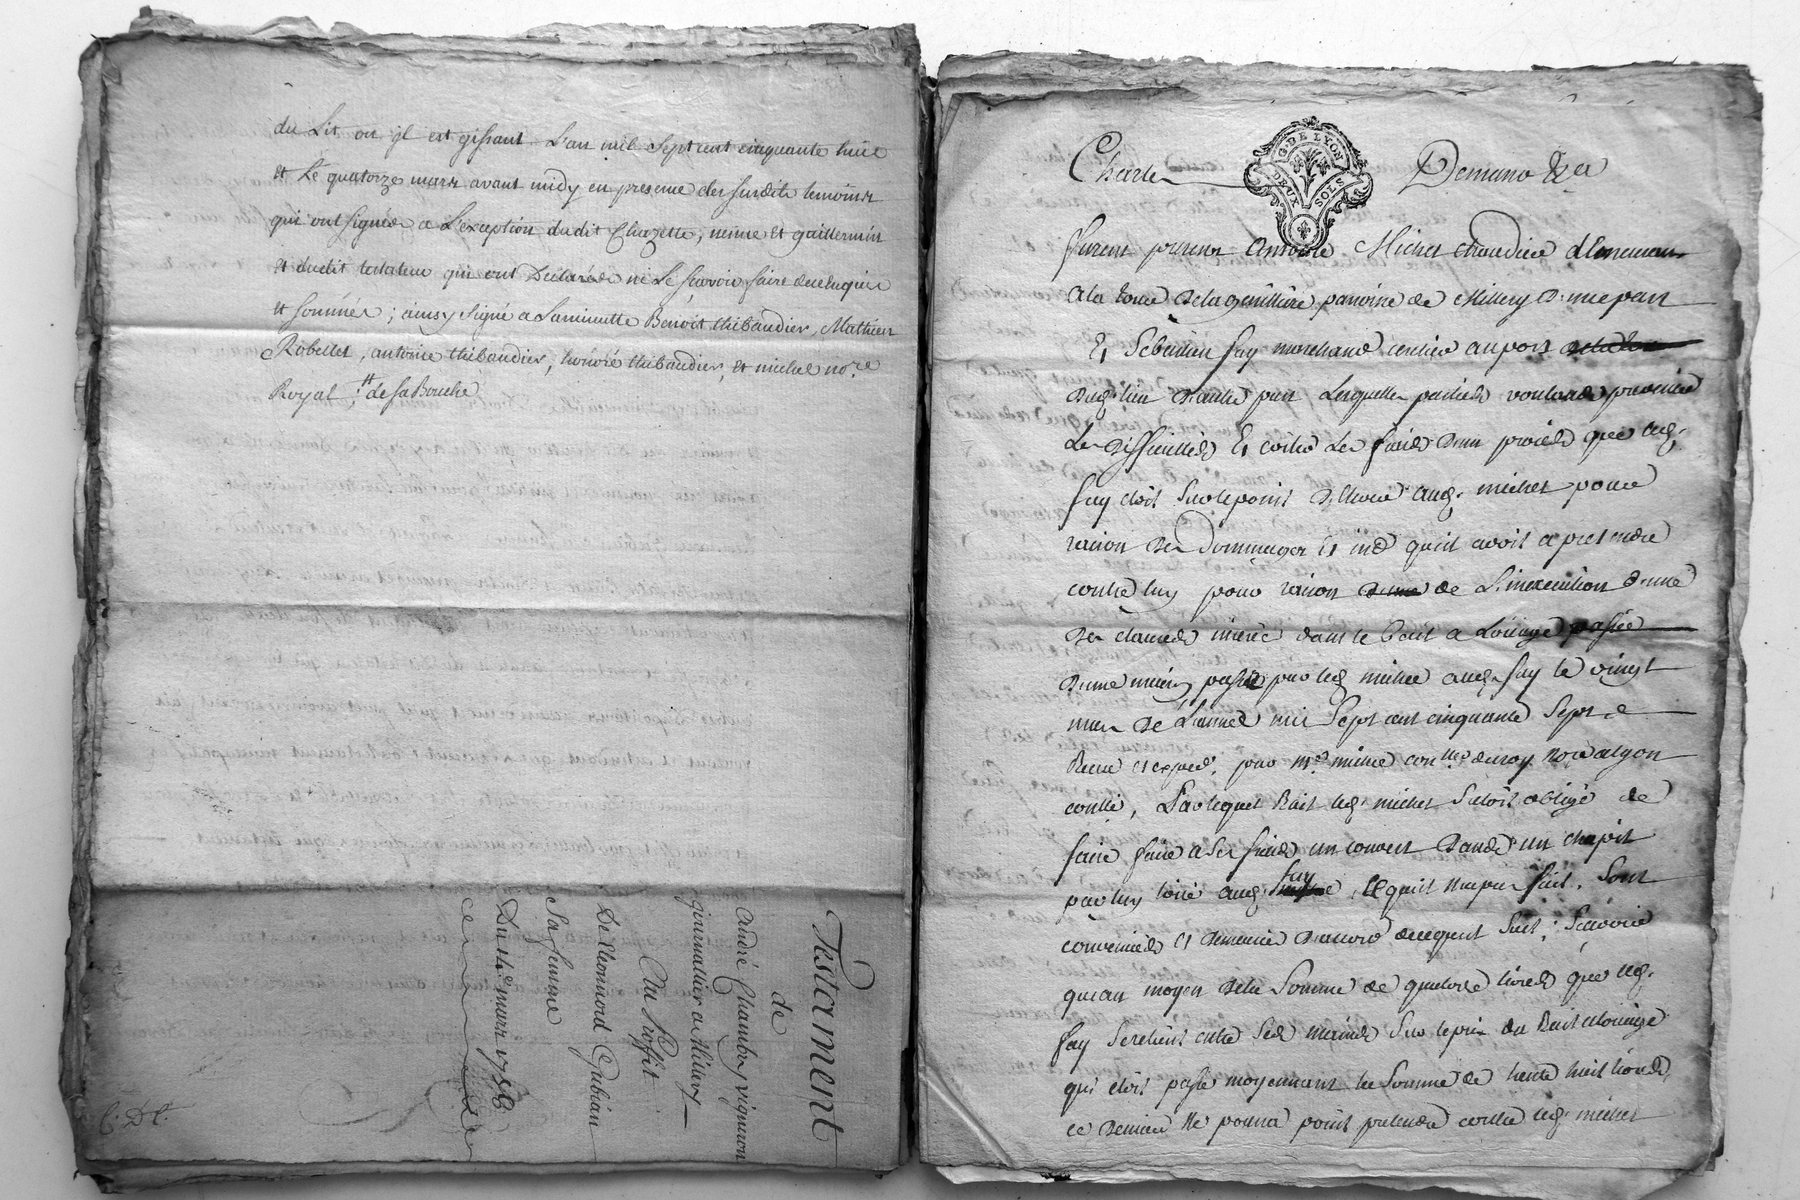 du Lit ou jl est gissant L'an mil sept cent cinquante huit
et Le quatorze mars avant midy en presence des susdits temoins
qui ont signés a L'exception dudit Chazette, neime et guillermin
et dudit testateur qui ont Declarés ne Le sçavoir faire de ce enquis
et sommés ; ainsy signé a La minutte Benoit thibaudier, Mathieu
Robellet, antoine thibaudier, honoré thibaudier, et michel no.re
Royal de la Bouche
Testament
de
andré Chambry vigneron
journallier a Millery
Au Proffit
De Leonnard Gubian
Sa femme
Du 14e mars 1758
C. De.
G. DE LYON
DEUX SOLS
Charles Demano &a
furent presens Antoine Michel
a la Tour de la paroisse de Millery D'une part
Et Sebastien fay marchand au port
dud. lieu d'autre part Lesquelles parties voulant prevenir
Les difficultés Et eviter Les frais d'un procés que led.
fay etoit sur le point aud. michel pour
raison des Dommages Et qu'il avoit a pretendre
contre luy pour raison de L'inexecution d'une
des clauses inseré dans le Bail a Loüage passée
d'une maison passé par led. michel aud. fay le vingt
mars de L'année mil sept cent cinquante sept
Receu et exped. par Me du roy no.re a lyon
Par lequel Bail led. michel s'etoit obligé de
faire faire a ses frais un couvert dans un
par luy loüé aud. fay, Ce qu'il n'a pas fait, sont
convenües et demeurés d'accord de ce qui suit ; Sçavoir
qu'au moyen de la somme de quatorze livres que led.
fay se retient entre ses mains sur le prix du Bail a loüage
qui etoit passé moyennant la somme de trente huit livres
ce dernier Ne pourra point pretendre contre led. michel